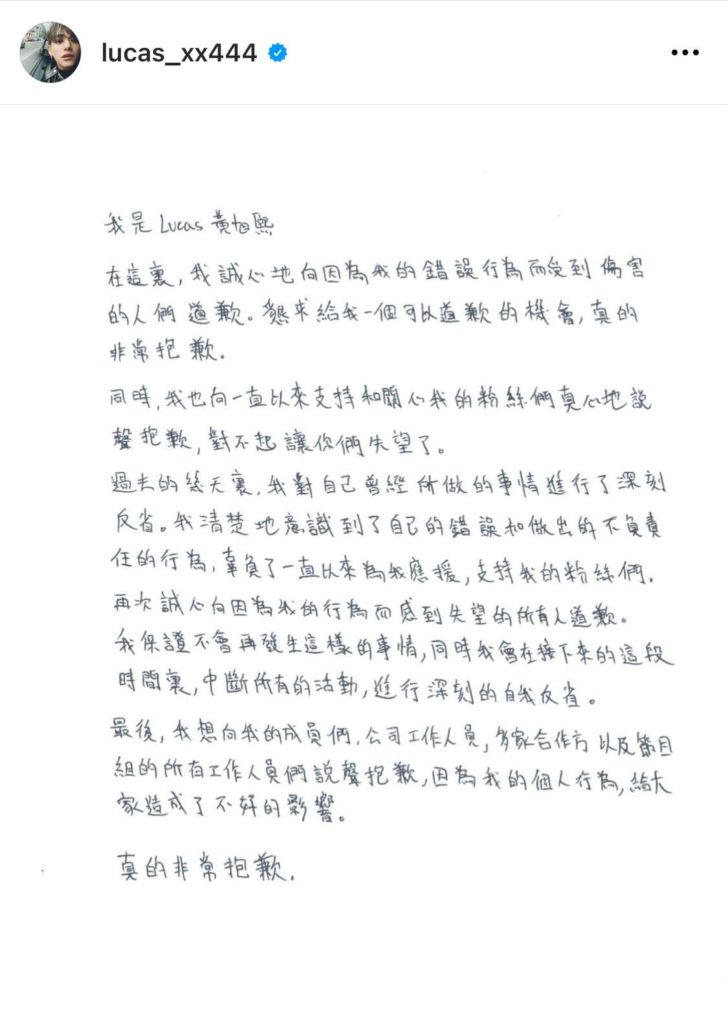 lucas_xx444
我是 Lucas 黃旭熙
在這裏，我誠心地向因為我的錯誤行為而受到傷害
的人們道歉。懇求給我一個可以道歉的機會，真的
非常抱歉.
同時，我也向一直以來支持和關心我的粉絲們真心地說
聲抱歉，對不起讓你們失望了。
過去的幾天裏，我對自己曾經所做的事情進行了深刻
反省。我清楚地意識到了自己的錯誤和做出的不負責
任的行為，辜負了一直以來為我應援，支持我的粉絲們.
再次誠心向因為我的行為而感到失望的所有人道歉。
我保證不會再發生這樣的事情，同時我會在接下來的這段
時間裏，中斷所有的活動，進行深刻的自我反省。
最後，我想向我的成員們，公司工作人員，多家合作方以及節目
組的所有工作人員們說聲抱歉，因為我的個人行為，給大
家造成了不好的影響。
真的非常抱歉.